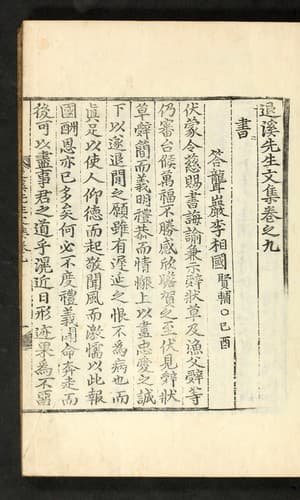 退溪先生文集卷之九
書
答聾巖李相國賢輔○己酉
伏蒙令慈賜書誨諭兼示辭狀草及漁父辭等
仍審台候萬福不勝感欣瞻賀之至伏見辭狀
草辭簡而義明禮恭而情懇上以盡忠愛之誠
下以遂退閒之願雖有遲延之恨不為病也而
眞足以使人仰德而起敬聞風而激懦以此報
國酬恩亦已多矣何必不度禮義聞命奔走而
後可以盡事君之道乎滉近日形迹果為不